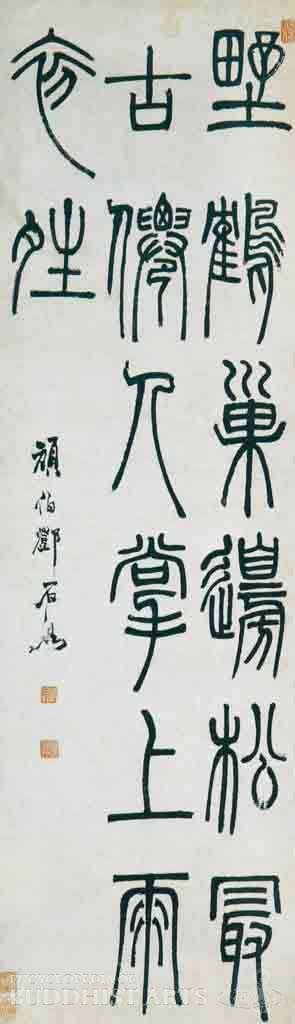 野鶴巢邊松最
古僊人掌上雨
初夝
頑伯鄧石如
BUDDHIST ARTS